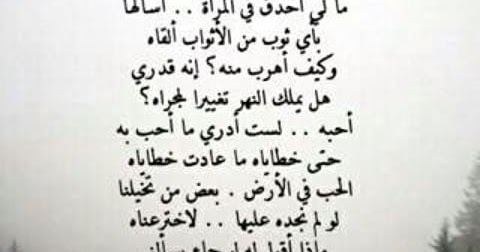 ما لي أحدق في المرآة . . أسألها
بأي ثوب من الأثواب ألقاه
وكيف أهرب منه؟ إنه قدري
هل يملك النهر تغييرا لمجراه؟
أحبه . . لست أدري ما أحب به
حتى خطاياه ما عادت خطاياه
الحب في الأرض . بعض من تخيلنا
لو لم نجده عليها . . لاخترعناه
ماذا أقول له لو جاء يسألني